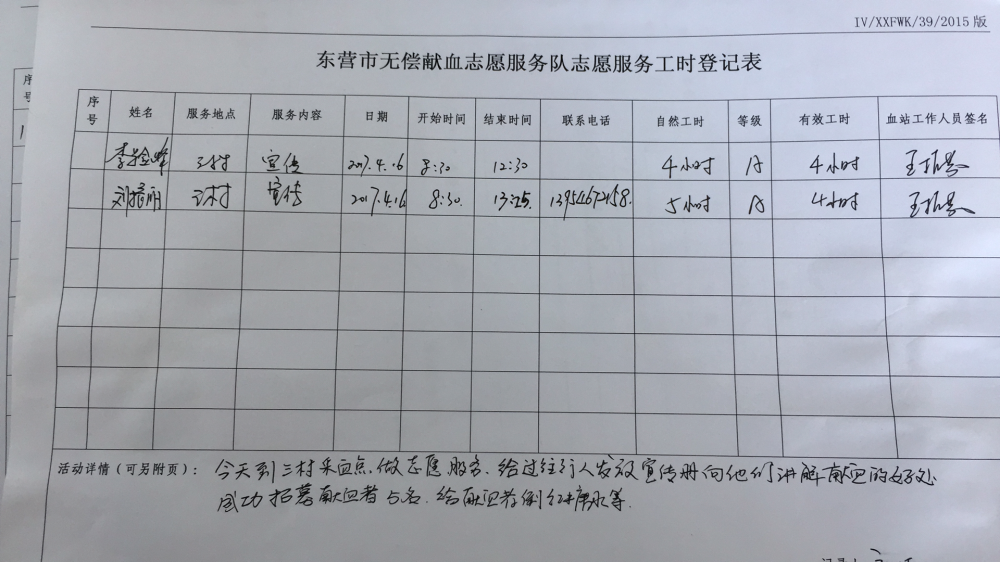 IV/XXFWK/39/2015 版
东营市无偿献血志愿服务队志愿服务工时登记表
序号 姓名 服务地点 服务内容 日期 开始时间 结束时间 联系电话 自然工时 等级 有效工时 血站工作人员签名
三村 宣传 2017.4.16 8:30 12:30 4小时 A 4小时
刘振丽 三村 宣传 2017.4.16 8:30. 13954672158. 5小时 A 4小时
活动详情（可另附页）： 今天到三村采血点,做志愿服务.给过往行人发放宣传册向他们讲解献血的好处
成功招募献血者5名.给献血者倒红糖水等.
序号